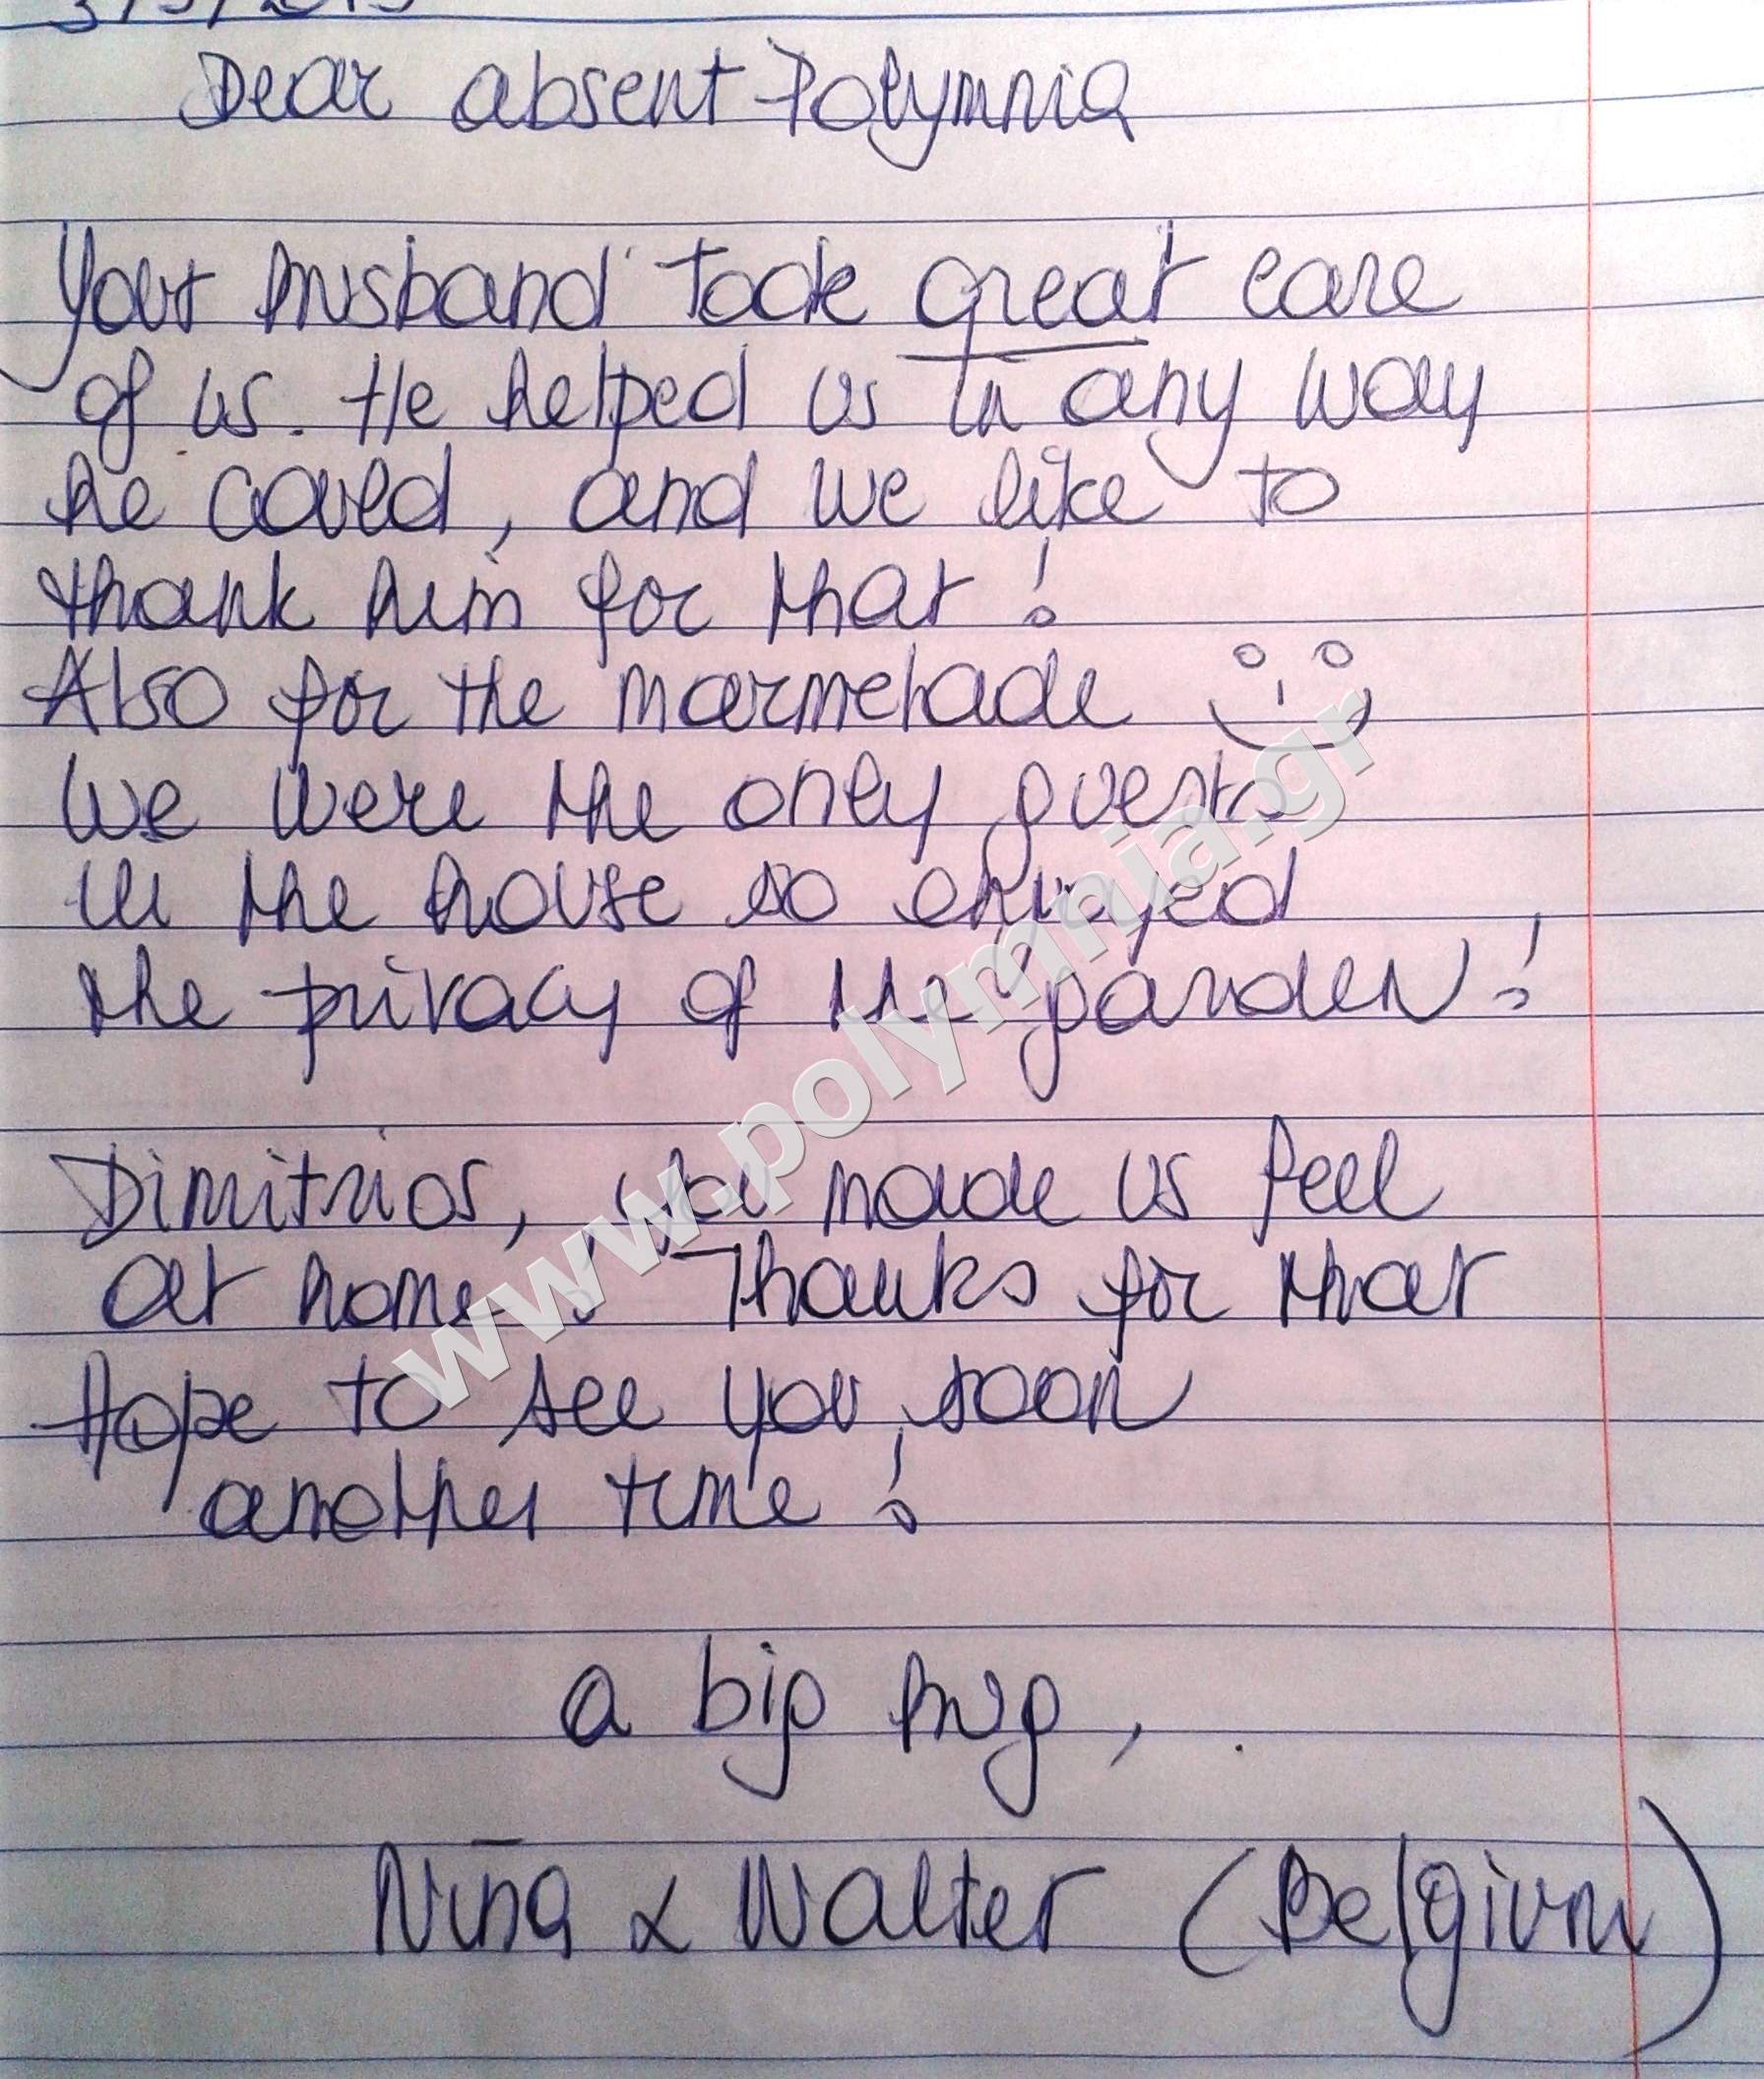 Dear absent Polymnia
Your husband took great care
of us. He helped us in any way
he could, and we like to
thank him for that!
Also for the marmelade
We were the only guests
in the house so enjoyed
the privacy of the garden!
Dimitrios, you made us feel
at home! Thanks for that
Hope to see you soon
another time!
a big hug,
Nina & Walter (Belgium)
www.polymnia.gr